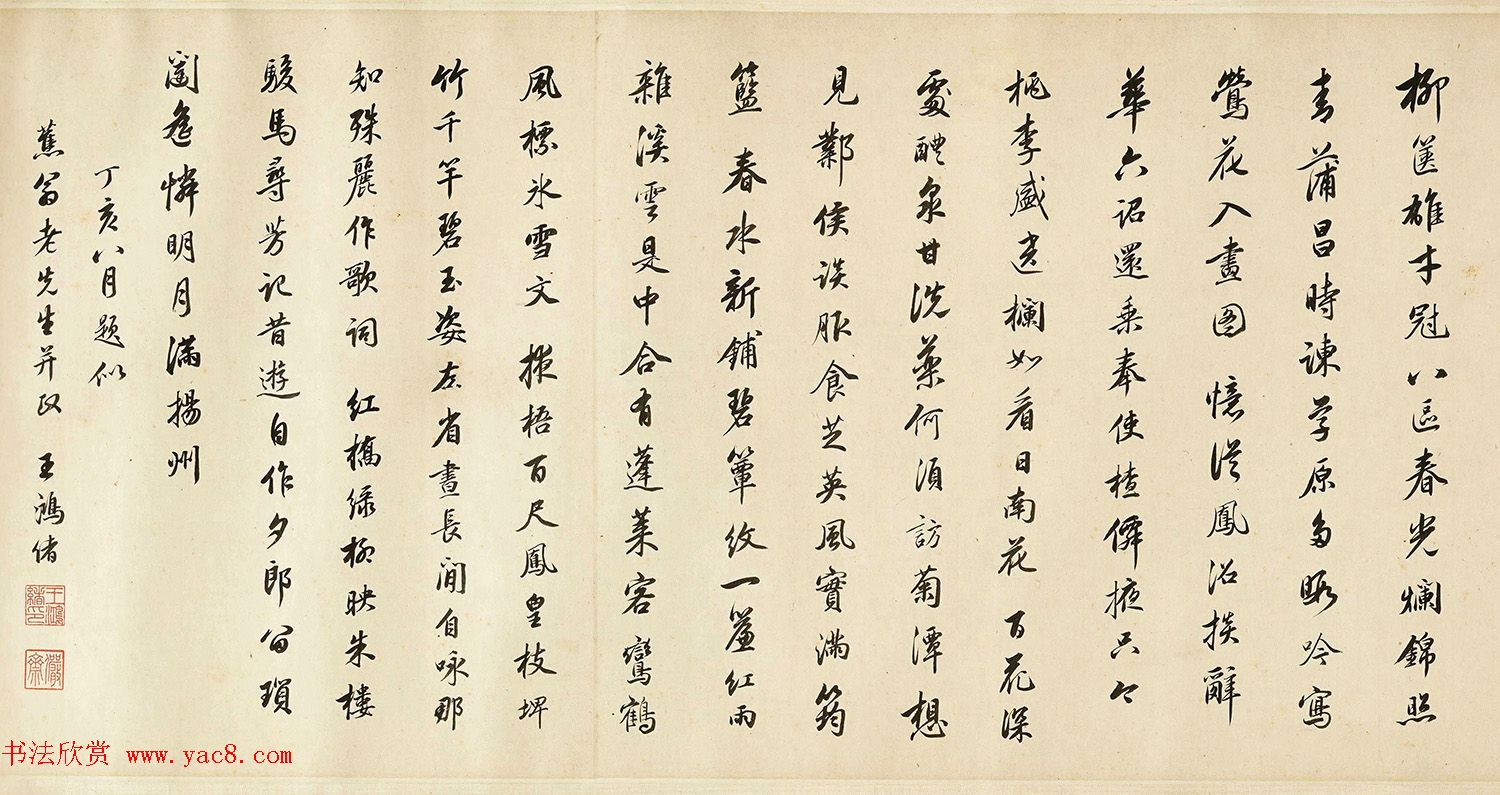 柳篋雄才冠八區春光爛錦照
青蒲昌時諫草原多暇吟寫
鶯花入畫圖 憶從鳳沼掞辭
華六詔還乘奉使槎僚掖只今
桃李盛遶欄如看日南花 百花深
處醴泉甘洗藥何須訪菊潭想
見鄴侯談服食芝英風實滿筠
籃 春水新鋪碧簟紋一簾紅雨
雜溪雲是中合有蓬萊客鸞鶴
風標氷雪文 掖梧百尺鳳皇枝埤
竹千竿碧玉姿左省晝長閒自咏那
知殊麗作歌詞 紅橋綠柳映朱樓
駿馬尋芳記昔遊自作夕郎留瑣
闥愈憐明月滿揚州
丁亥八月題似
蕉翁老先生并政 王鴻緒
王鴻緒印
儼齋
书法欣赏 www.yac8.com